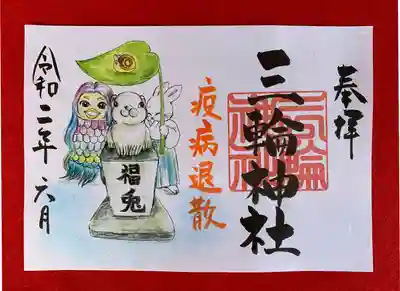 奉拝
三輪神社
三輪神社
疫病退散
福兎
令和二年六月